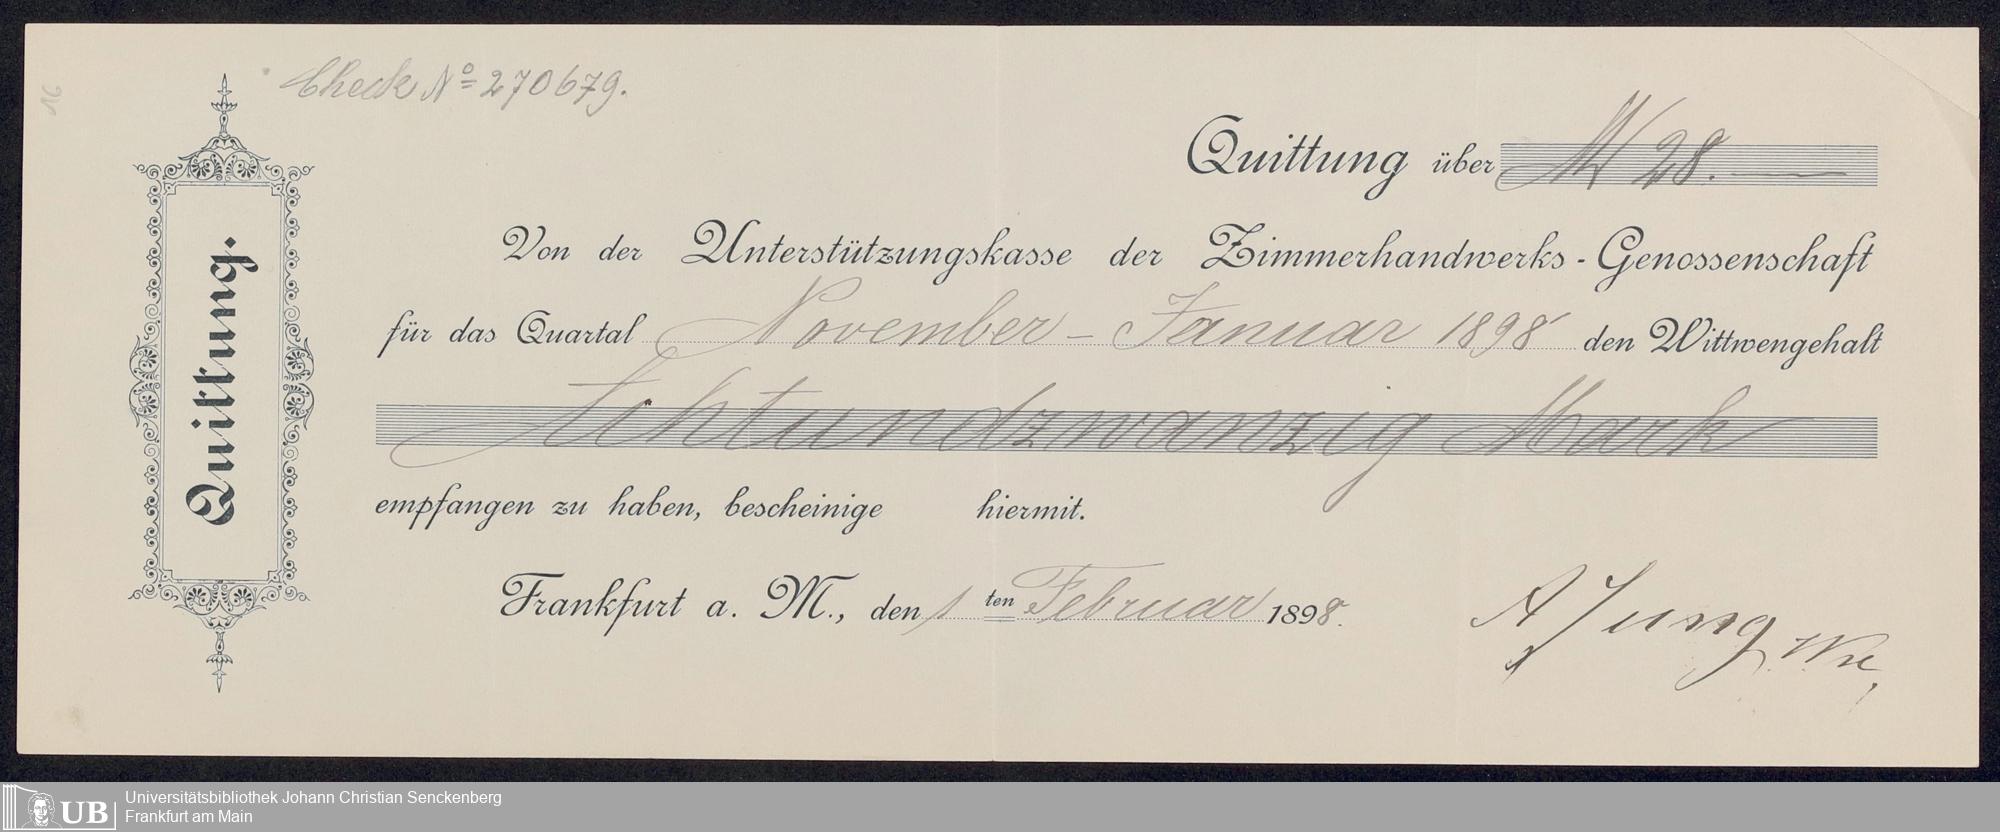 16
Check No 270679.
Quittung.
Quittung über M 28.—
Von der Unterstützungskasse der Zimmerhandwerks-Genossenschaft
für das Quartal November – Januar 1898 den Wittwengehalt
Achtundzwanzig Mark
empfangen zu haben, bescheinige hiermit.
Frankfurt a. M., den 1 ten Februar 1898.
A Jung Wwe,
UB
Universitätsbibliothek Johann Christian Senckenberg
Frankfurt am Main